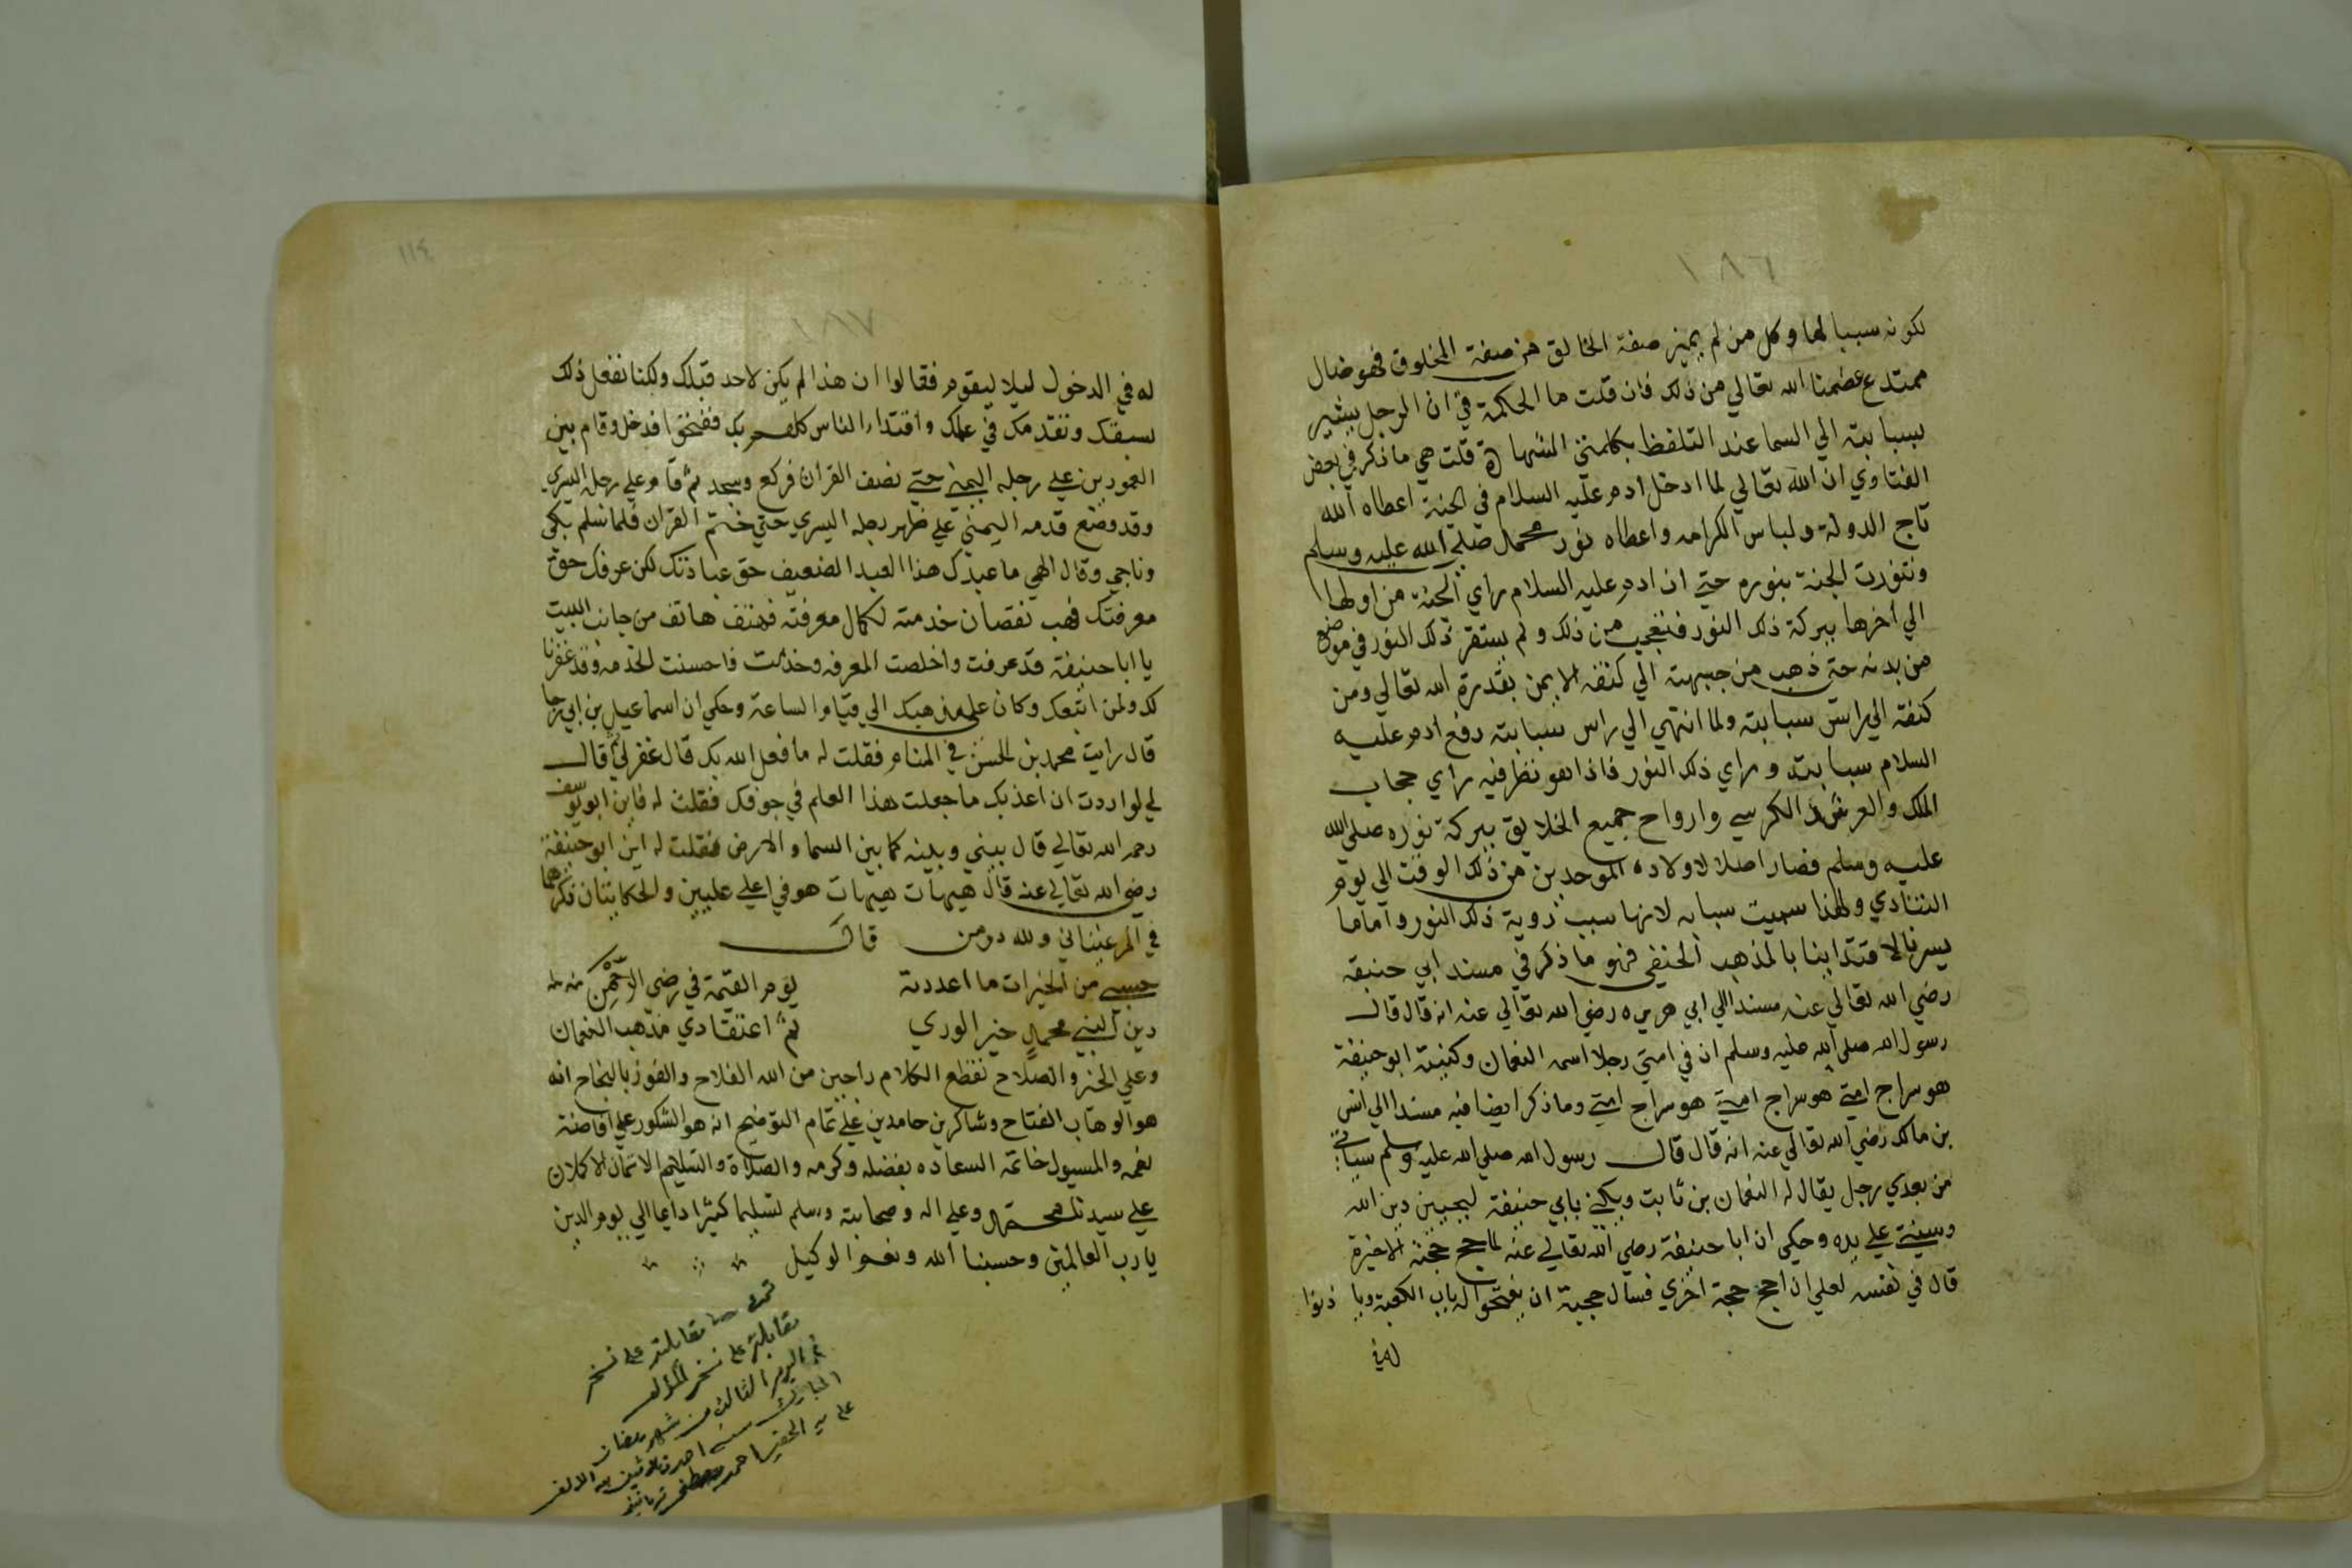 ١٨٦
لكونه سببا لها وكل من لم يميز صفة الخالق من صفة المخلوق فهو ضال
مبتدع عصمنا الله تعالي من ذلك فان قلت ما الحكمة في ان الرجل يشير
بسبابته الي السما عند التلفظ بكلمتي الشهادة قلت هي ما ذكر في بعض
الفتاوي ان الله تعالي لما ادخل ادم عليه السلام في الجنة اعطاه الله
تاج الدولة ولباس الكرامه واعطاه نور محمد صلي الله عليه وسلم
وتنورت الجنة بنوره حتي ان ادم عليه السلام راي الجنة من اولها
الي اخرها ببركة ذلك النور فتعجب من ذلك ولم يستقر ذلك النور في موضع
من بدنه حتي ذهب من جبهته الي كتفه الايمن بقدرة الله تعالي ومن
كتفه الي راس سبابته ولما انتهي الي راس سبابته رفع ادم عليه
السلام سبابته وراي ذلك النور فاذا هو نظر فيه راي حجاب
الملك والعرش والكرسي وارواح جميع الخلايق ببركة نوره صلي الله
عليه وسلم فصار اصلا لاولاده الموحدين من ذلك الوقت الي يوم
التنادي ولهذا سميت سبابه لانها سبب روية ذلك النور واما ما
يسرنا لاقتدابنا بالمذهب الحنفي فهو ما ذكر في مسند ابي حنيفه
رضي الله تعالي عنه مسندا الي ابي هريره رضي الله تعالي عنه انه قال قال
رسول الله صلي الله عليه وسلم ان في امتي رجلا اسمه النعمان وكنيته ابو حنيفة
هو سراج امتي هو سراج امتي هو سراج امتي وما ذكر ايضا فيه مسندا الي انس
بن مالك رضي الله تعالي عنه انه قال قال رسول الله صلي الله عليه وسلم سياتي
من بعدي رجل يقال له النعمان بن ثابت ويكني بابي حنيفة ليحيين دين الله
وسنتي علي يده وحكي ان ابا حنيفة رضي الله تعالي عنه لما حج حجته الاخيرة
قال في نفسه لعلي ان احج حجة اخري فسال حجبة ان يفتحوا له باب الكعبة ويا ذنوا
له في
١١٤
١٨٧
له في الدخول ليلا ليقوم فقالوا ان هذا لم يكن لاحد قبلك ولكنا نفعل ذلك
لسبقك وتقدمك في علمك واقتداء الناس كلهم بك ففتحوا فدخل وقام بين
العمودين علي رجله اليمني حتي نصف القران فركع وسجد ثم قام علي رجله اليسري
وقد وضع قدمه اليمني علي ظهر رجله اليسري حتي ختم القران فلما سلم بكي
وناجي وقال الهي ما عبدك هذا العبد الضعيف حق عبادتك لكن عرفك حق
معرفتك فهب نقصان خدمته لكمال معرفته فهتف هاتف من جانب البيت
يا ابا حنيفة قد عرفت واخلصت المعرفه وخدمت فاحسنت الخدمه وقد غفرنا
لك ولمن اتبعك وكان علي مذهبك الي قيام الساعة وحكي ان اسماعيل بن ابي رجا
قال رايت محمد بن الحسن في المنام فقلت له ما فعل الله بك قال غفر لي ثم قال
لي لو اردت ان اعذبك ما جعلت هذا العلم في جوفك فقلت له فاين ابو يوسف
رحمه الله تعالي قال بيني وبينه كما بين السما والارض فقلت له اين ابو حنيفة
رضي الله تعالي عنه قال هيهات هيهات هو في اعلي عليين والحكايتان ذكرهما
في المرغيناني ولله در من قال
حسبي من الخيرات ما اعددته يوم القيمة في رضي الرحمن
دين النبي محمد خير الوري ثم اعتقادي مذهب النعمان
وعلي الخير والصلاح نقطع الكلام راجين من الله الفلاح والفوز بالنجاح انه
هو الوهاب الفتاح وشاكرين حامدين علي تمام التوضيح انه هو الشكور علي افاضة
نعمه والمسيول خاتمة السعاده بفضله وكرمه والصلاة والتسليم الاتمان الاكملان
علي سيدنا محمد وعلي اله وصحابته وسلم تسليما كثيرا دايما الي يوم الدين
يا رب العالمين وحسبنا الله ونعم الوكيل
تمت مقابلته علي نسخة
مقابلة علي نسخة المؤلف
في اليوم الثالث من شهر رمضان
المبارك سنه احدي وثلاثين بعد الالف
علي يد الحقير احمد بن مصطفي